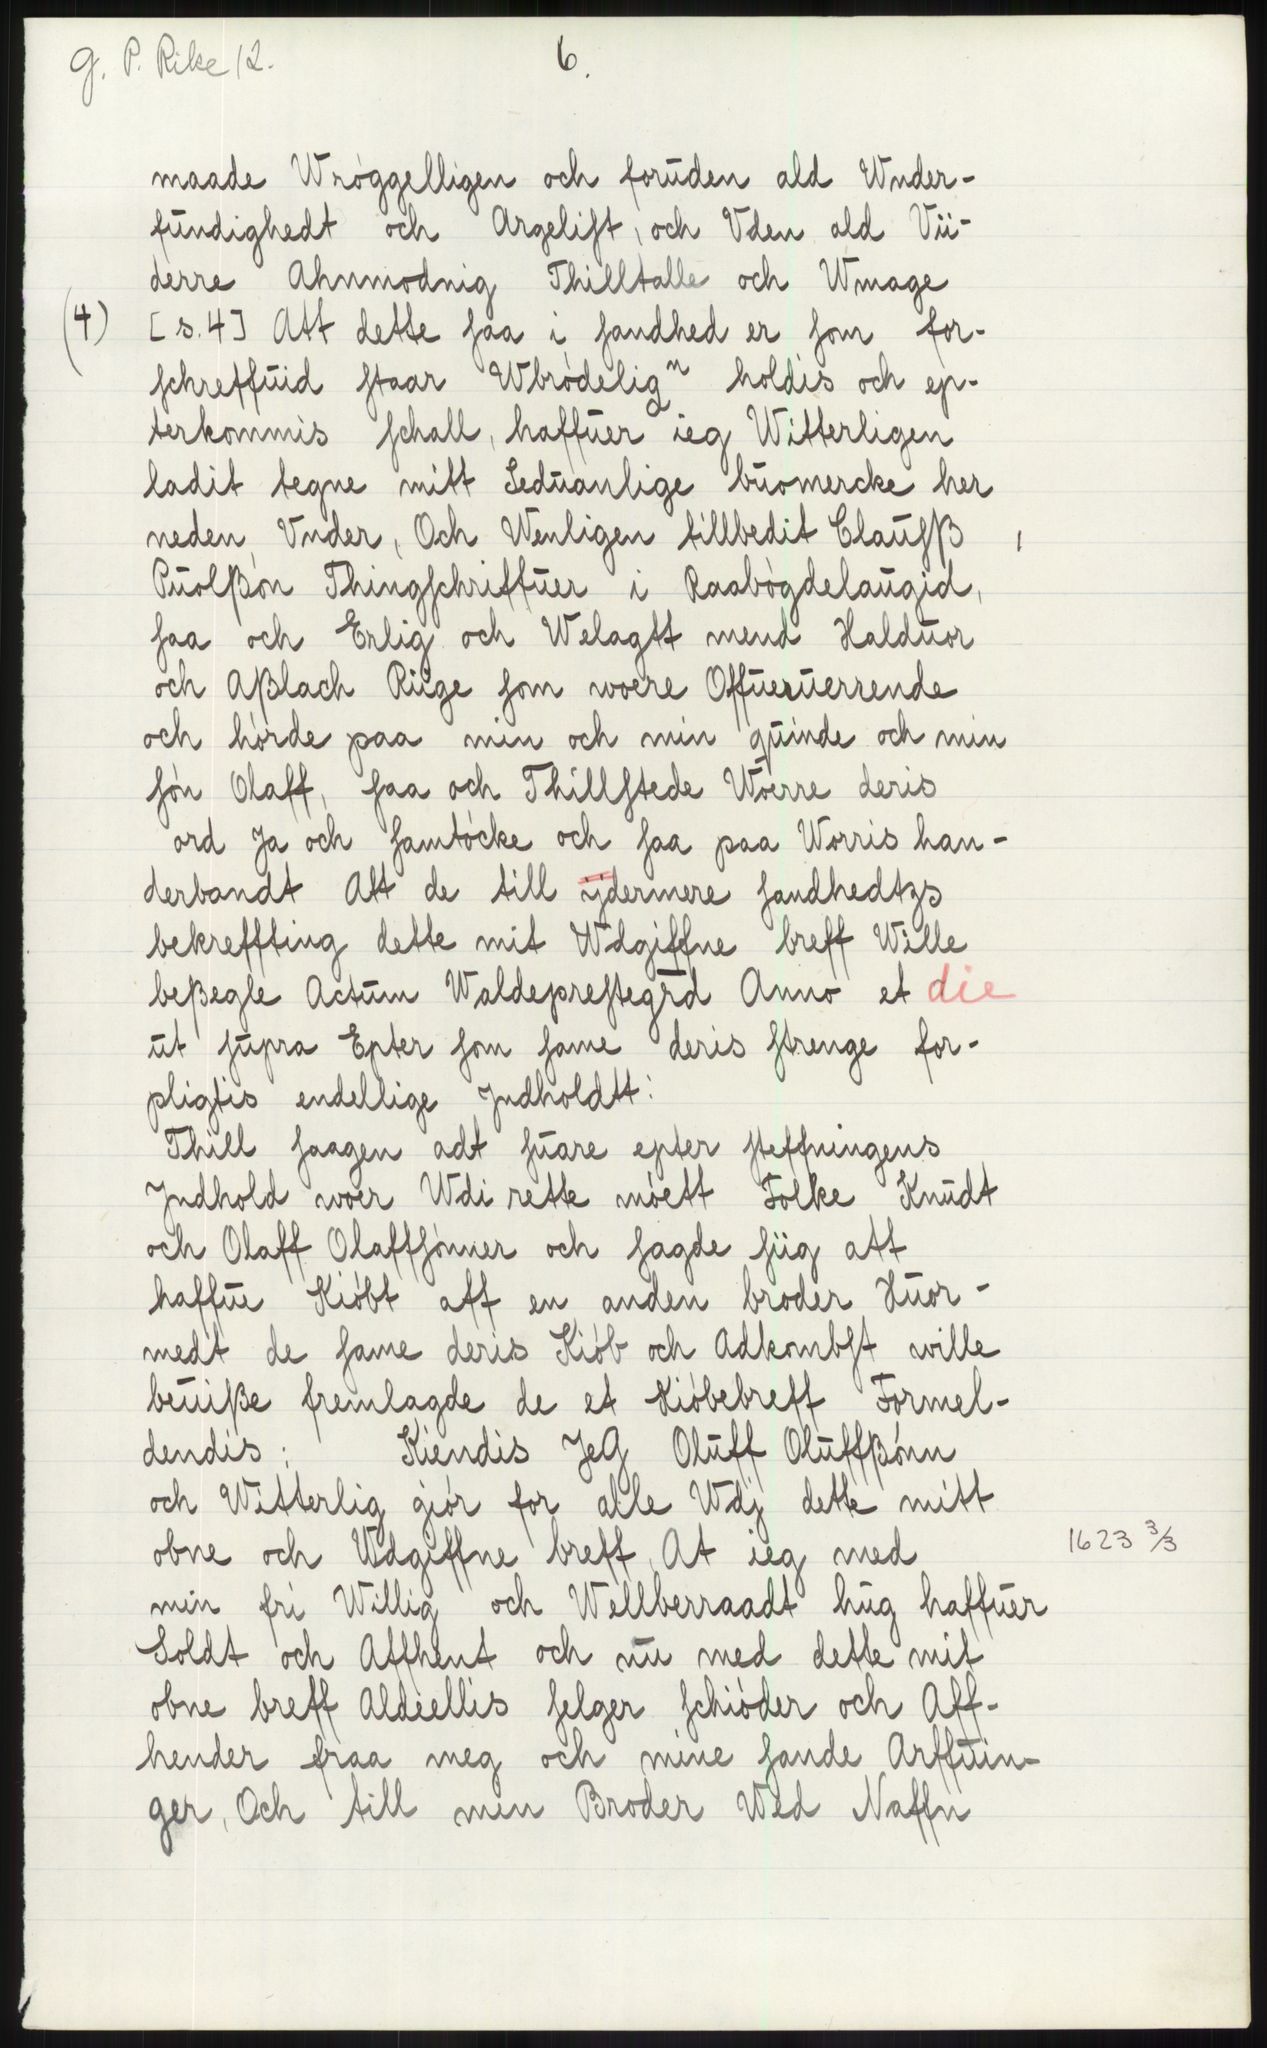 g. P. Rike 12.
6.
maade Wróggelligen och foruden ald Wnder-
fundighedt och Argelist, och Vden ald Vii-
derre Ahnmodnig Thilltalle och Wmage
(4) [s.4] Att dette saa i sandhed er som for-
schreffuid staar Wbródelign holdis och ep-
terkommis schall, haffuer ieg Witterligen
ladit tegne mitt Seduanlige buomercke her
neden, Vnder, Och Wenligen tillbedit Clausß
Puolßón Thingschriffuer i Raabógdelaugid,
saa och Erlig och Welagtt mend Halduor
och Aßlach Riige som woere Offueruerrende
och hórde paa min och min quinde och min
són Olaff, saa och Thillstede Woerre deris
ord Ja och samtócke och saa paa Worris han-
derbandt Att de till ÿdermere sandhedtzs
bekreffting dette mit Wdgiffne breff Wille
beßegle Actum Waldeprestegrd Anno et die
ut supra Epter som same deris strenge for-
pligtis endellige Jndholdtt:
Thill saagen adt suare epter steffningens
Jndhold woer Wdi rette móett Folke Knudt
och Olaff Olaffsónner och sagde siig att
haffue Kióbt aff en anden broder Huor-
medt de same deris Kiób och Adkombst wille
beuiße fremlagde de et Kióbebreff Formel-
dendis: Kiendis JeG Oluff Oluffßónn
och Witterlig giór for alle Wdj dette mitt
obne och Wdgiffne breff, At ieg med 1623 3/3
min fri Willig och Wellberraadt hug haffuer
Soldt och Affhent och nu med dette mit
obne breff Aldiellis selger schióder och Aff-
hender fraa meg och mine sande Arffuin-
ger, Och till min Broder Wed Naffn